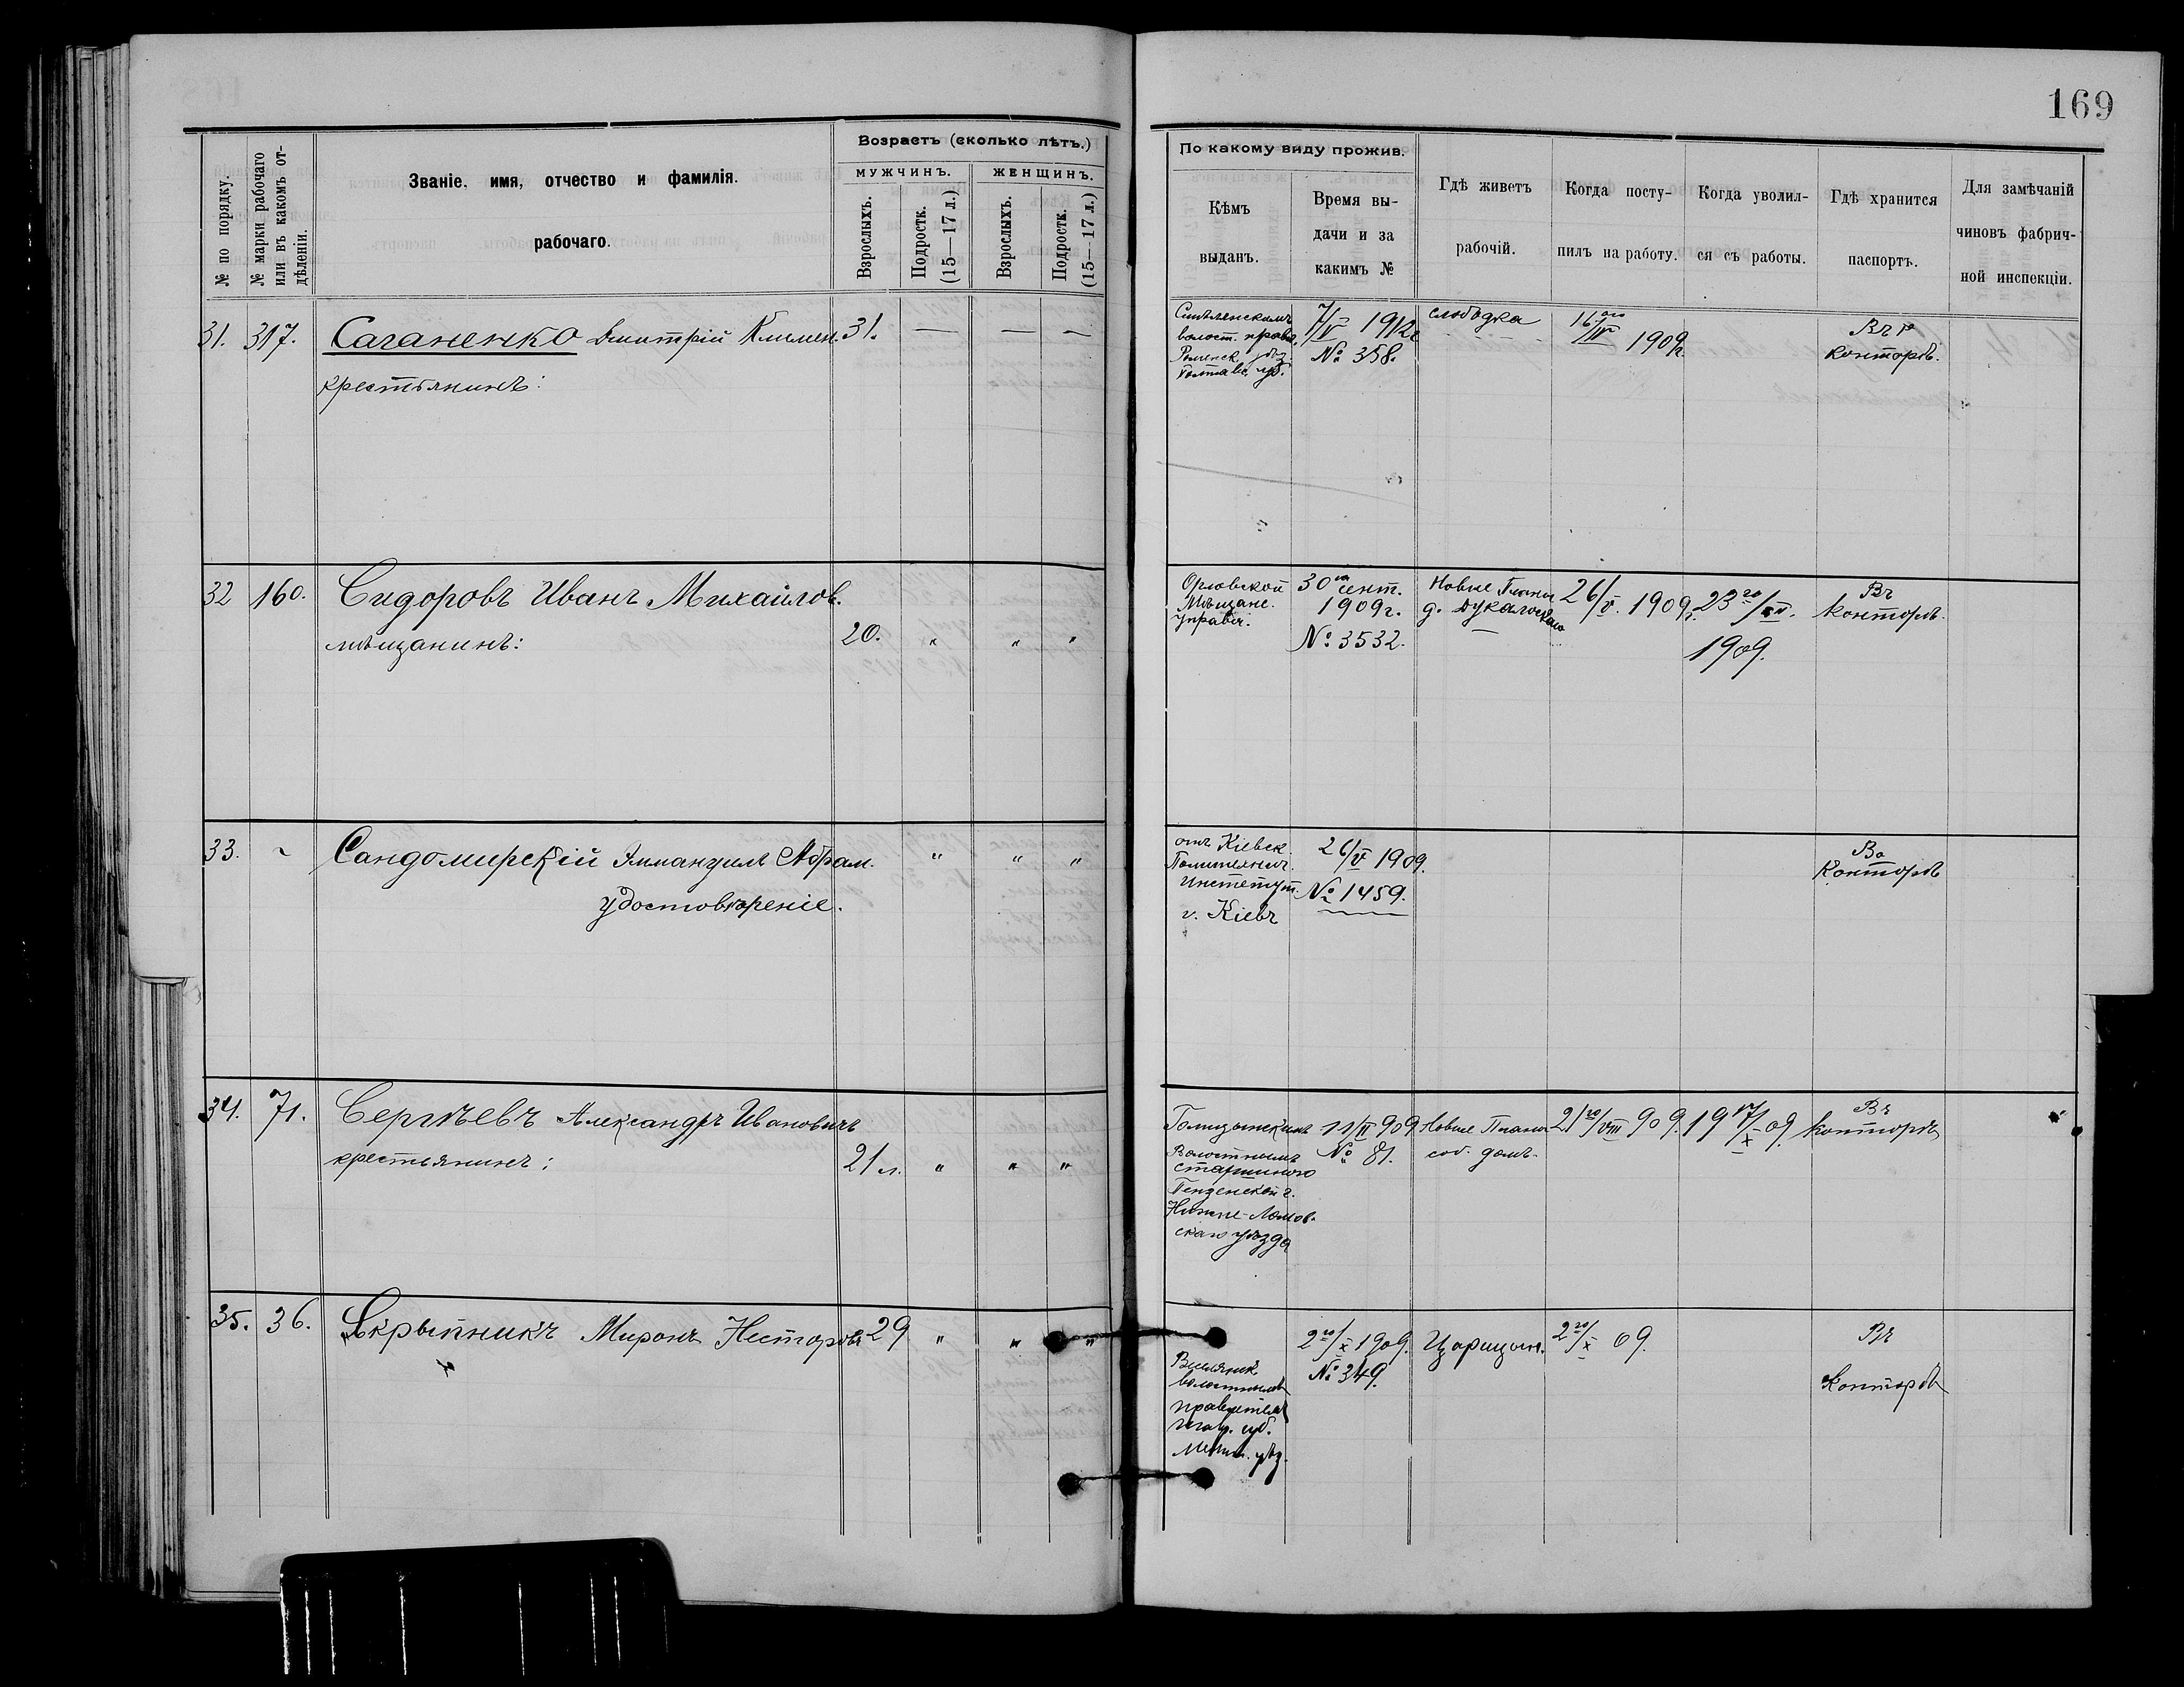 169
№ по порядку.
№ марки рабочаго или въ какомъ от-
дѣленіи.
Званіе, имя, отчество и фамилія.
рабочаго.
Возрастъ (сколько лѣтъ.)
МУЖЧИНЪ.
ЖЕНЩИНЪ.
Взрослыхъ.
Подростк.
(15—17 л.)
Взрослыхъ.
Подростк.
(15—17 л.)
По какому виду прожив.
Кѣмъ
выданъ.
Время вы-
дачи и за
какимъ №
Гдѣ живетъ
рабочій.
Когда посту-
пилъ на работу.
Когда уволил-
ся съ работы.
Гдѣ хранится
паспортъ.
Для замѣчаній
чиновъ фабрич-
ной инспекціи.
31. 317. Саганенко Дмитрій Климен. 31. — — —
крестьянинъ:
волост. правл.
Роменск. уѣз.
Полтавс. губ.
7/V 1912г
№ 358.
слободка
16го/IV 1909г.
Въ
конторѣ.
32 160. Сидоровъ Иванъ Михаилов.
мѣщанинъ: 20. " " "
Орловской
Мѣщанс.
управл.
30го сент.
1909г.
№ 3532.
Новые
д.
26/V. 1909г.
23го/
1909.
Въ
конторѣ.
33. ~ Сандомирскій Эммануилъ Абрам. " " "
удостовѣреніе.
отъ Кіевск.
Политехнич.
Инстетут.
г. Кіевъ
26/V 1909.
№ 1459.
Во
Конторѣ
34. 71. Сергѣевъ Александръ Ивановичъ
крестьянинъ; 21 л. " " "
Волостнымъ
старшиною
Пензенской г.
Нижне-Ломов-
скаго уѣзда
11/II 909
№ 81.
Новые Планы
соб. домъ.
21го/VIII 909.
19 /X 09
Въ
конторѣ
35. 36. Скрыпникъ Миронъ Несторовъ 29 " " "
волостнымъ
губ.
уѣз.
2го/X 1909.
№ 349.
Царицын.
2го/X 09.
Въ
Конторѣ